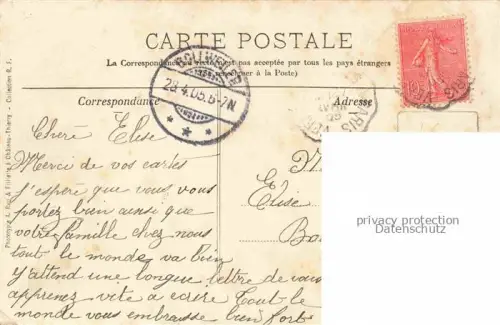 CARTE POSTALE
La Correspondance au recto n'est pas acceptée par tous les pays étrangers
à la Poste)
BOLLWEILER
26.4.05.6-7N
PARIS
Correspondance
Adresse
Chere Elise
Merci de vos cartes
j'espere que vous vous
portez bien ainsi que
votre famille chez nous
tout le monde va bien
J'attend une longue lettre de vous
apprenez vite a ecrire tout le
monde vous embrasse bien fort
Elise
privacy protection
Datenschutz